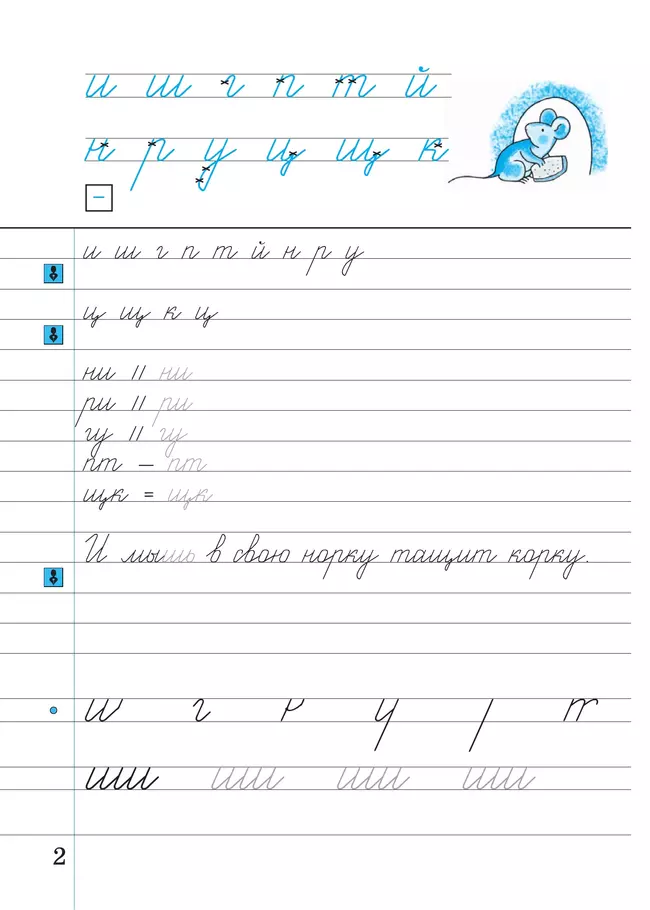 и ш г п т й
н р у ц щ к
–
и ш г п т й н р у
ц щ к ц
ни // ни
ри // ри
гу // гу
пт – пт
щк = щк
И мышь в свою норку тащит корку.
и г г у р т
иш иш иш иш
2